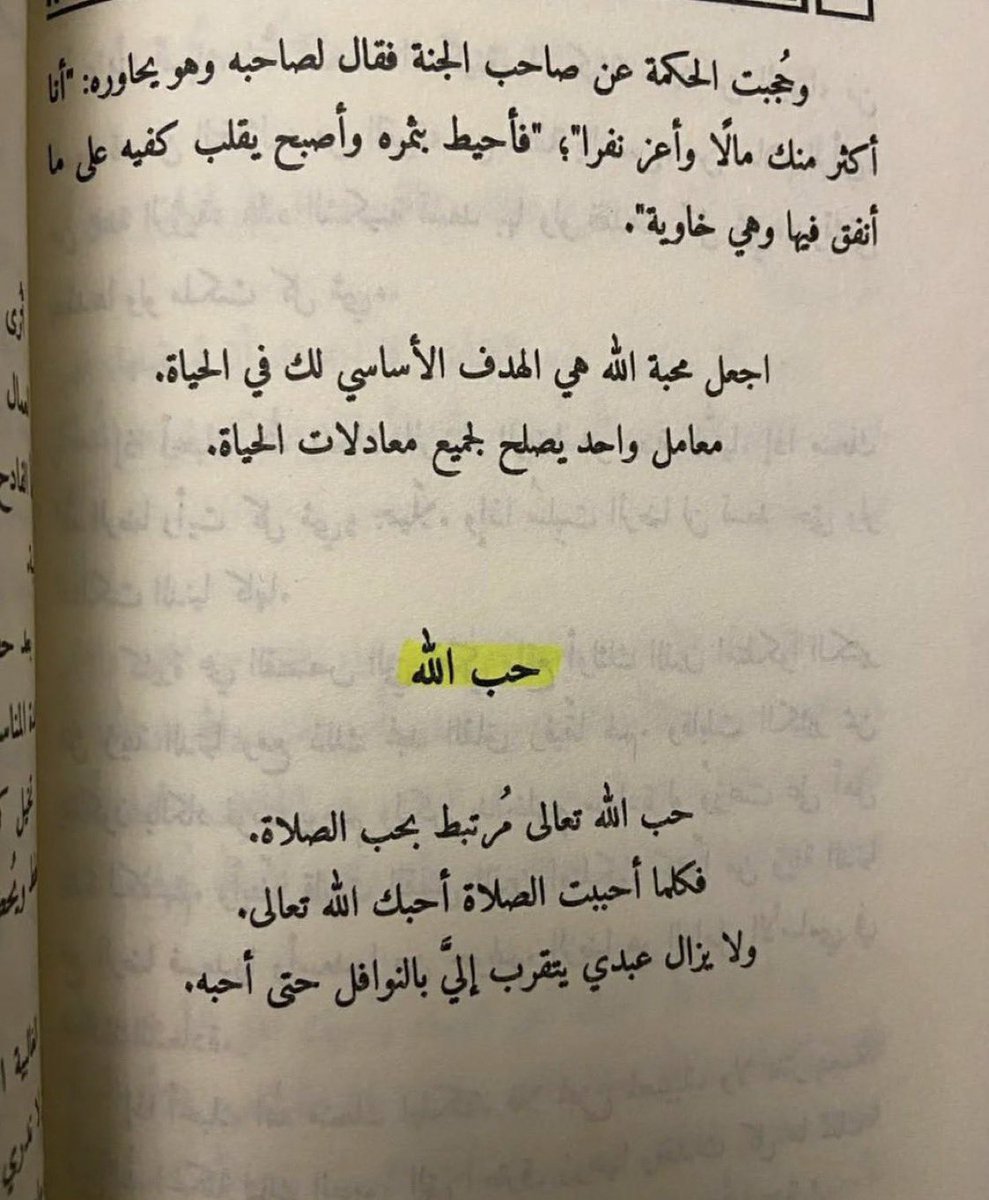 وحُجبت الحكمة عن صاحب الجنة فقال لصاحبه وهو يحاوره: "أنا
أكثر منك مالًا وأعز نفرا"؛ "فأحيط بثمره وأصبح يقلب كفيه على ما
أنفق فيها وهي خاوية".
اجعل محبة الله هي الهدف الأساسي لك في الحياة.
معامل واحد يصلح لجميع معادلات الحياة.
حب الله
حب الله تعالى مُرتبط بحب الصلاة.
فكلما أحببت الصلاة أحبك الله تعالى.
ولا يزال عبدي يتقرب إليَّ بالنوافل حتى أحبه.